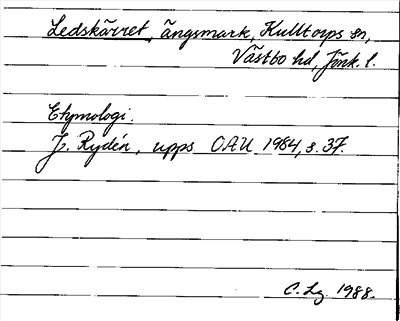 Ledskärret, ängsmark, Kulltorps sn,
Västbo hd, Jönk. l.
Etymologi.
J. Rydén, upps OAU 1984, s. 37.
C. Lg. 1988.